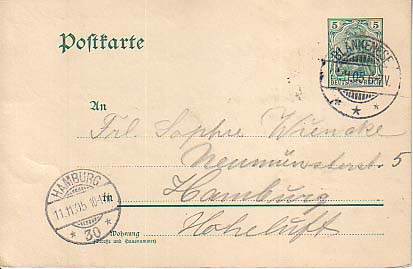 Postkarte
5 5
BLANKENESE
05 V.
An
Frl. Sophie Wiencke
Neumünsterst. 5
in Hamburg
Hoheluft
HAMBURG
11.11.05
* 30 *
Wohnung
(Straße und Hausnummer)